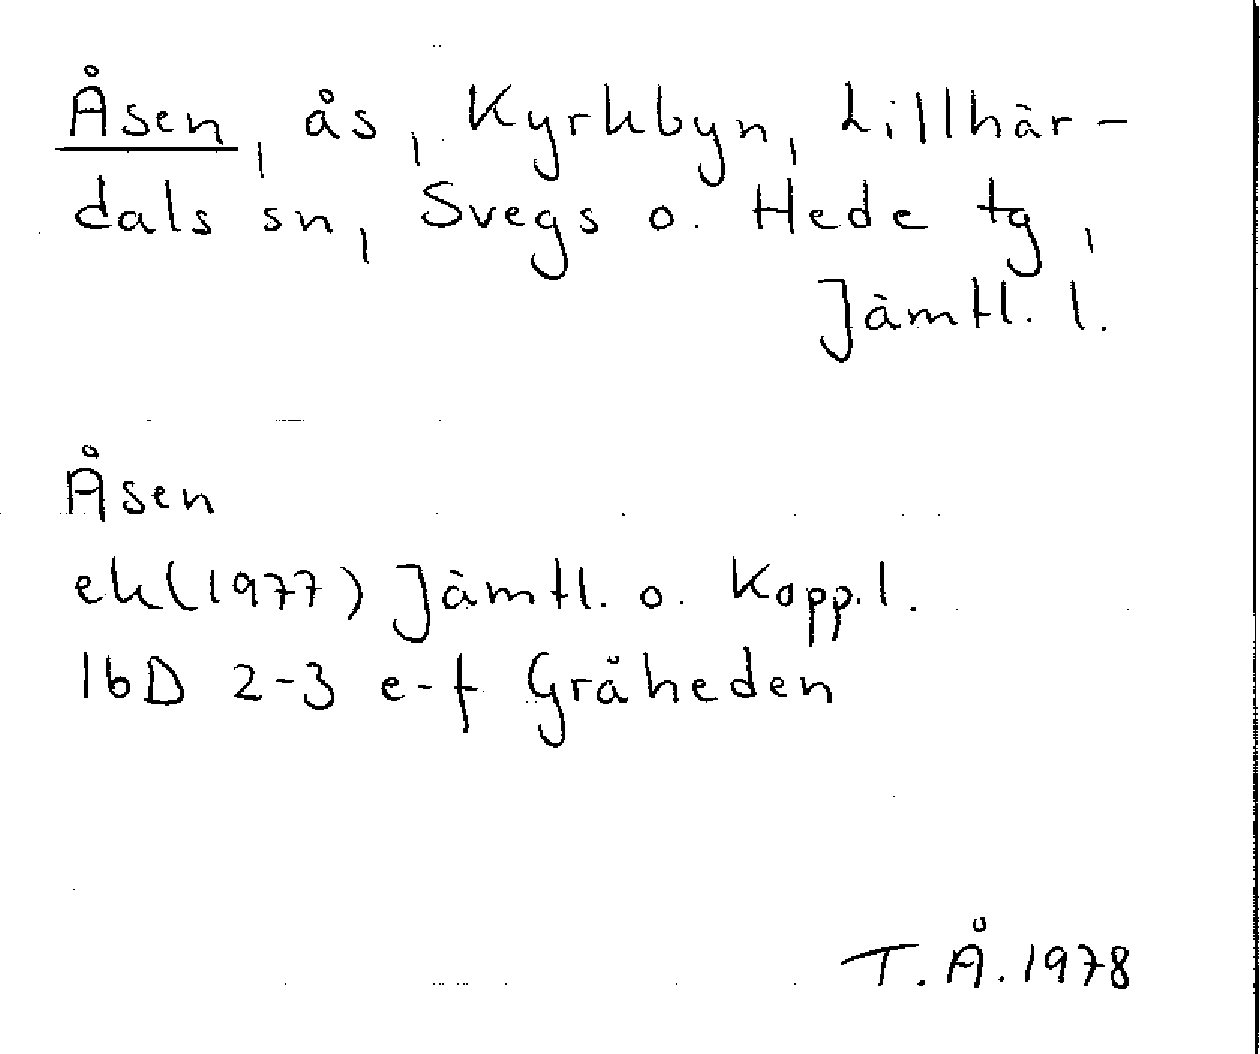 Åsen, ås, Kyrkbyn, Lillhär-
dals sn, Svegs o. Hede tg,
Jämtl. l.
Åsen
ek(1977) Jämtl. o. Kopp.l.
16D 2-3 e-f Gråheden
T.Å.1978